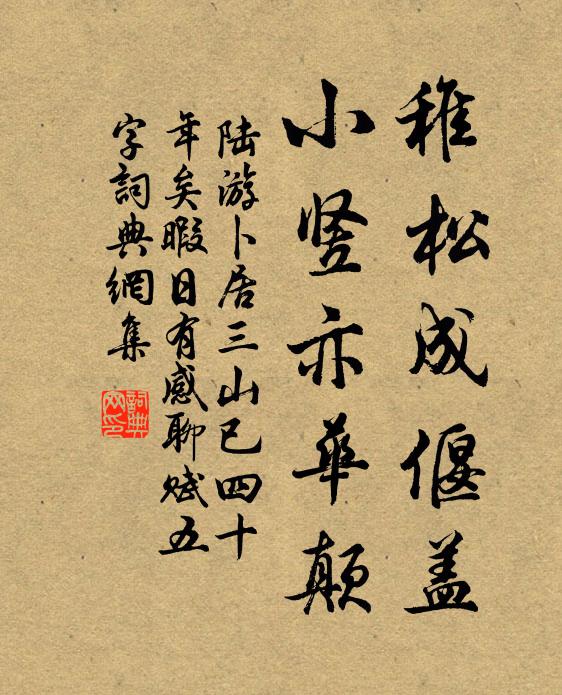 稚松成偃盖
小竖亦華顛
陆游卜居三山已四十
年矣暇日有感聊赋五
字詞典網集
詞典
网印